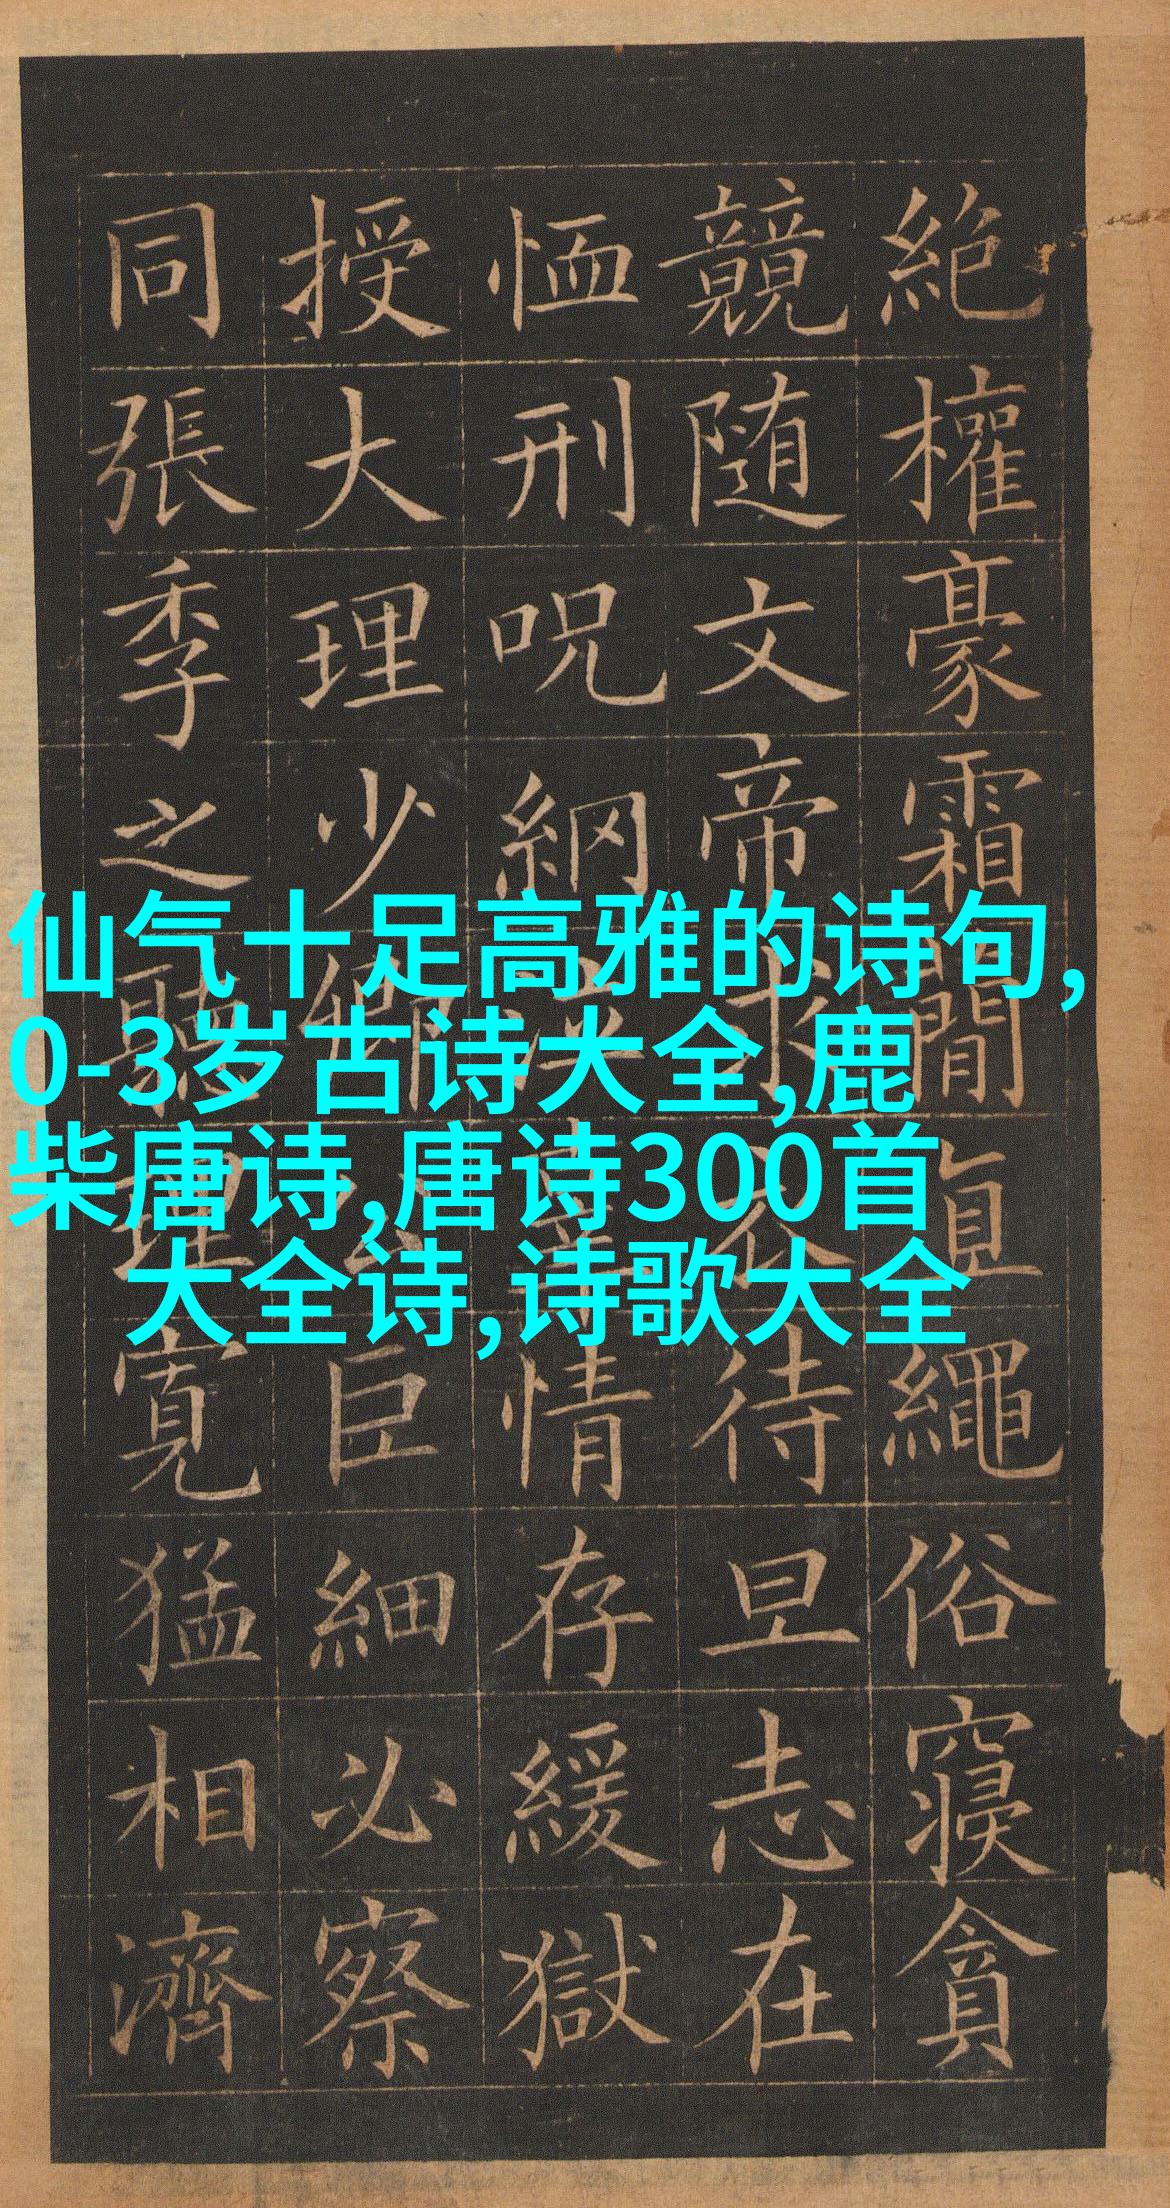 絶權豪霜簡直繩俗寢貪
競随文帝求衣待旦志在
恤刑呪網泣辜情存緩獄
授大理少卿公巨細必察
同張季之聽理寬猛相濟
仙气十足高雅的诗句,
0-3岁古诗大全,鹿
柴唐诗,唐诗300首
大全诗,诗歌大全